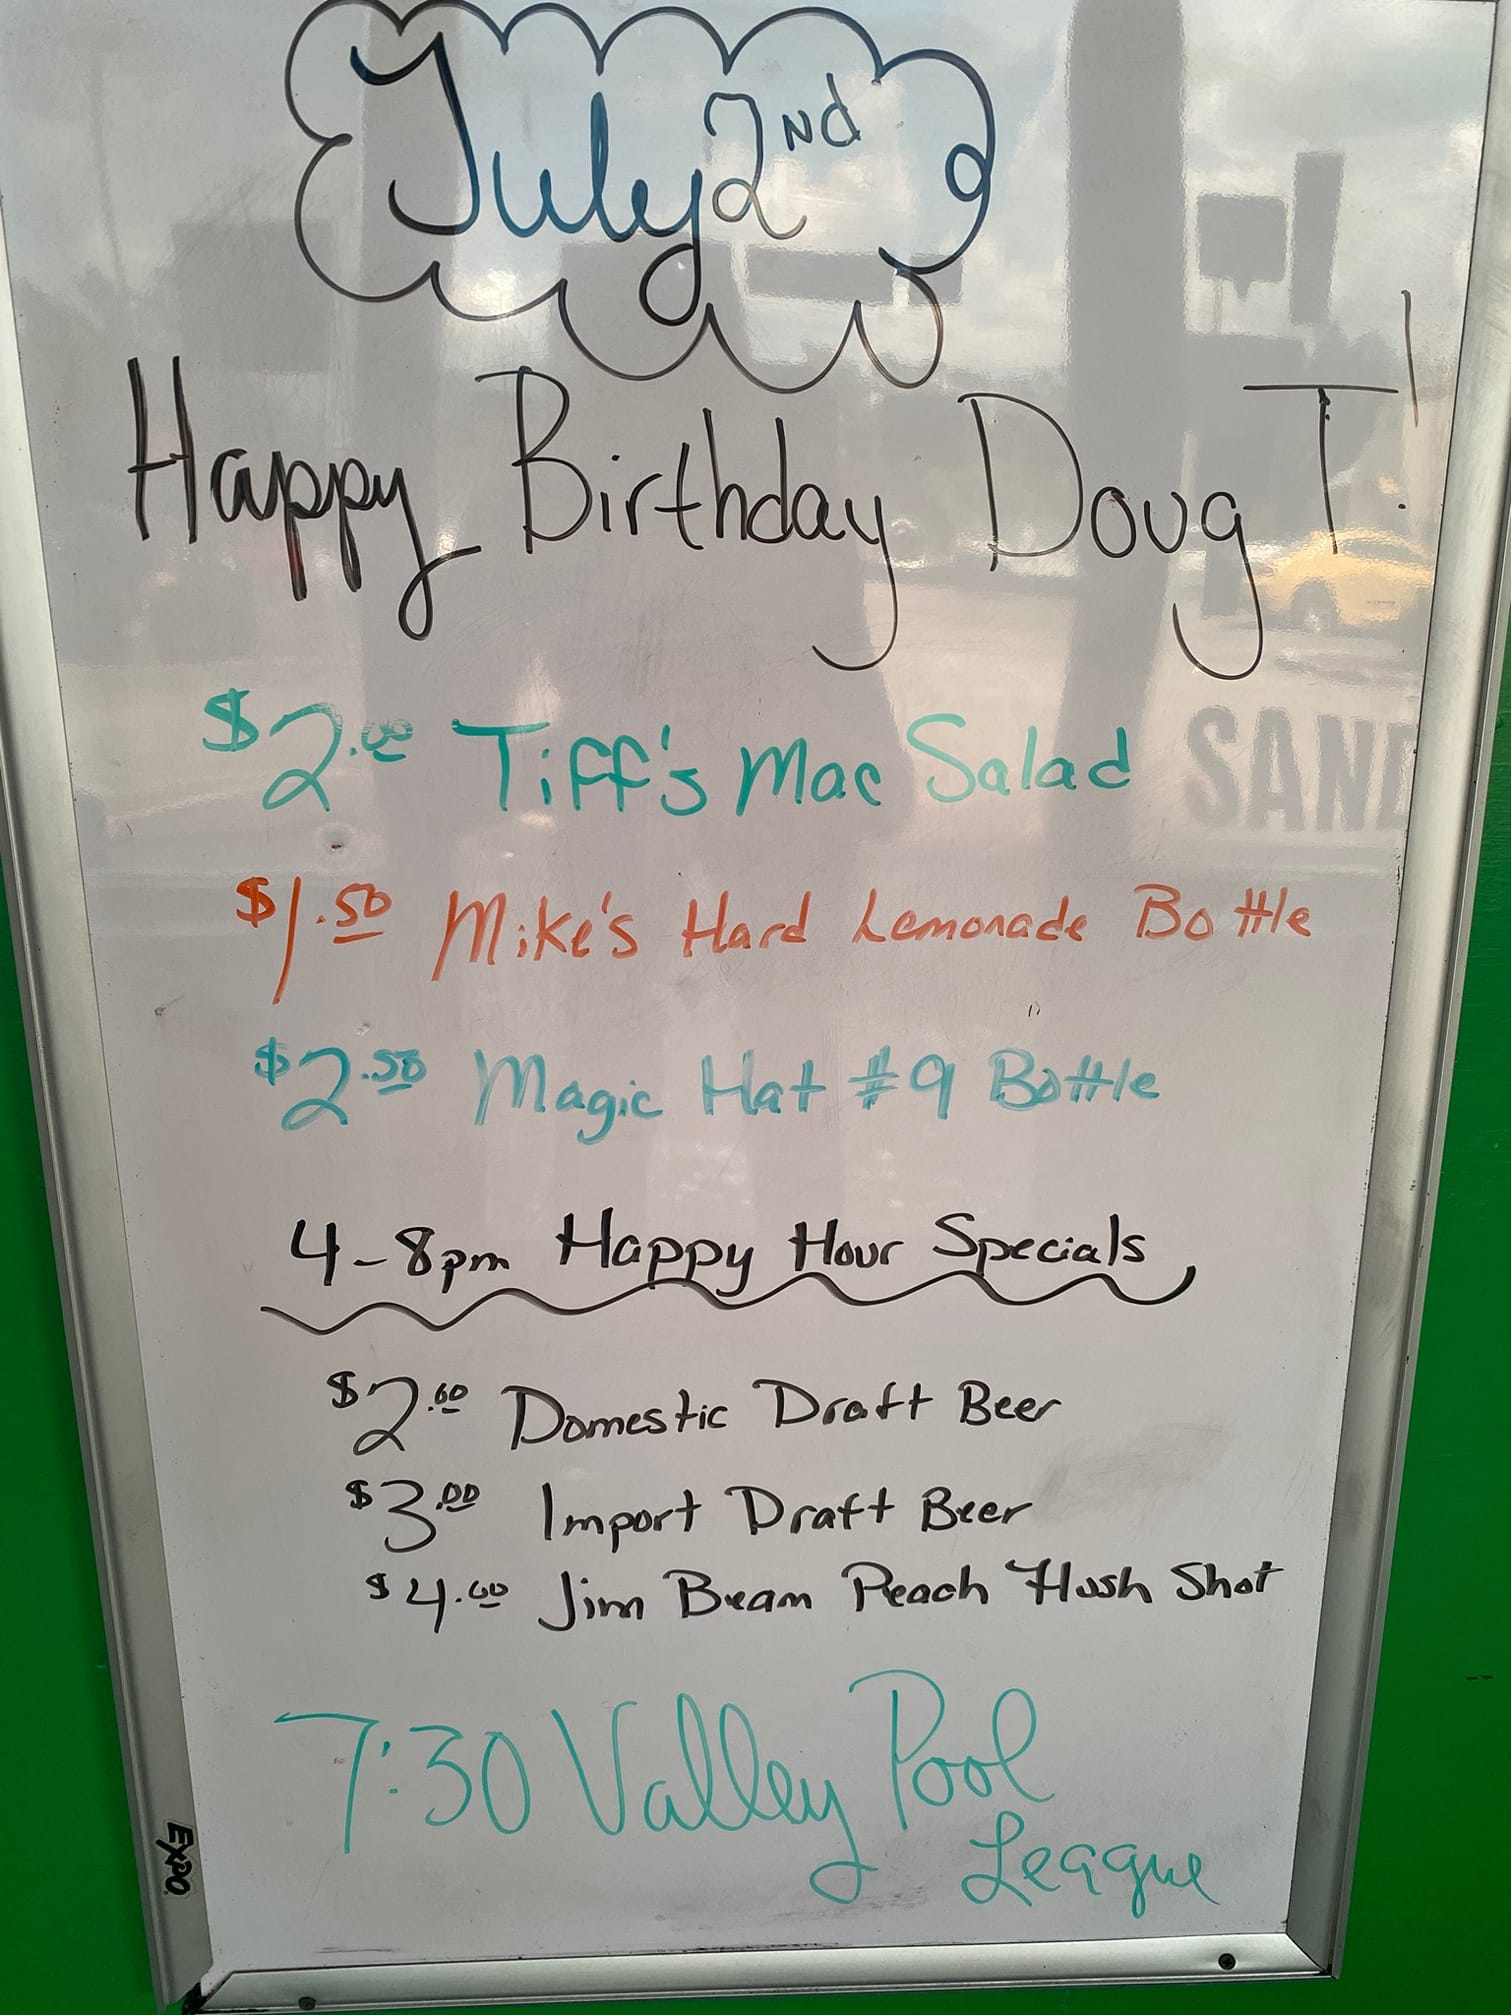 July 2nd
Happy Birthday Doug T.!
$2.00 Tiff's Mac Salad
$1.50 Mike's Hard Lemonade Bottle
$2.50 Magic Hat #9 Bottle
4-8pm Happy Hour Specials
$2.00 Domestic Draft Beer
$3.00 Import Draft Beer
$4.00 Jim Beam Peach Hush Shot
7:30 Valley Pool
League
EXPO
SAND